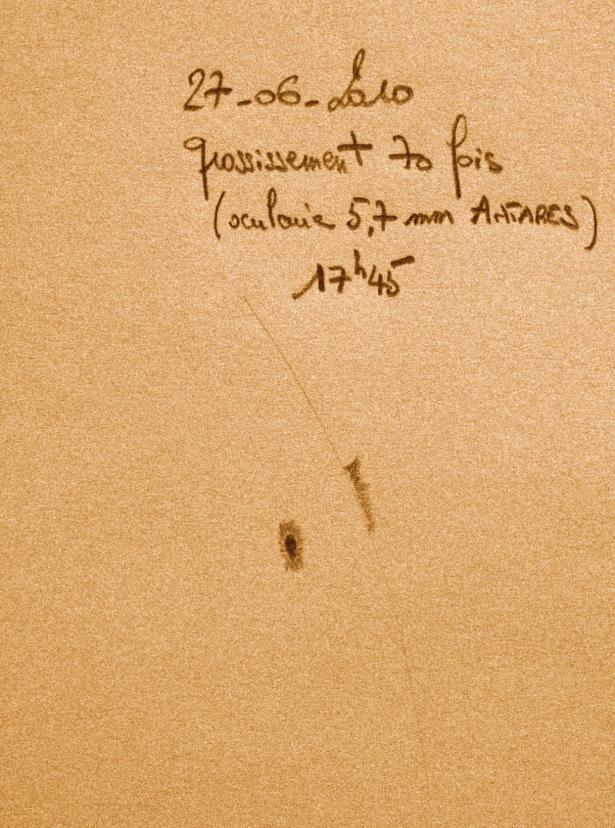 27-06-2010
grossissement 70 fois
(oculaire 5,7 mm ANTARES)
17h45